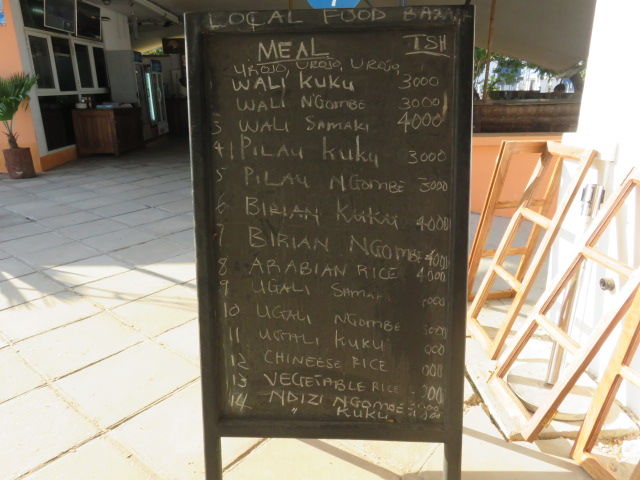 LOCAL FOOD BAZA
MEAL TSH
UROJO, UROJO, UROJO,
WALI KUKU 3000
WALI NGOMBE 3000
3 WALI SAMAKI 4000
4 PILAU KUKU 3000
5 PILAU NGOMBE 3000
6 BIRIAN KUKU 4000
7 BIRIAN NGOMBE 4000
8 ARABIAN RICE 4000
9 UGALI SAMAKI
10 UGALI NGOMBE
11 UGALI KUKU
12 CHINEESE RICE
13 VEGETABLE RICE
14 NDIZI NGOMBE
" KUKU